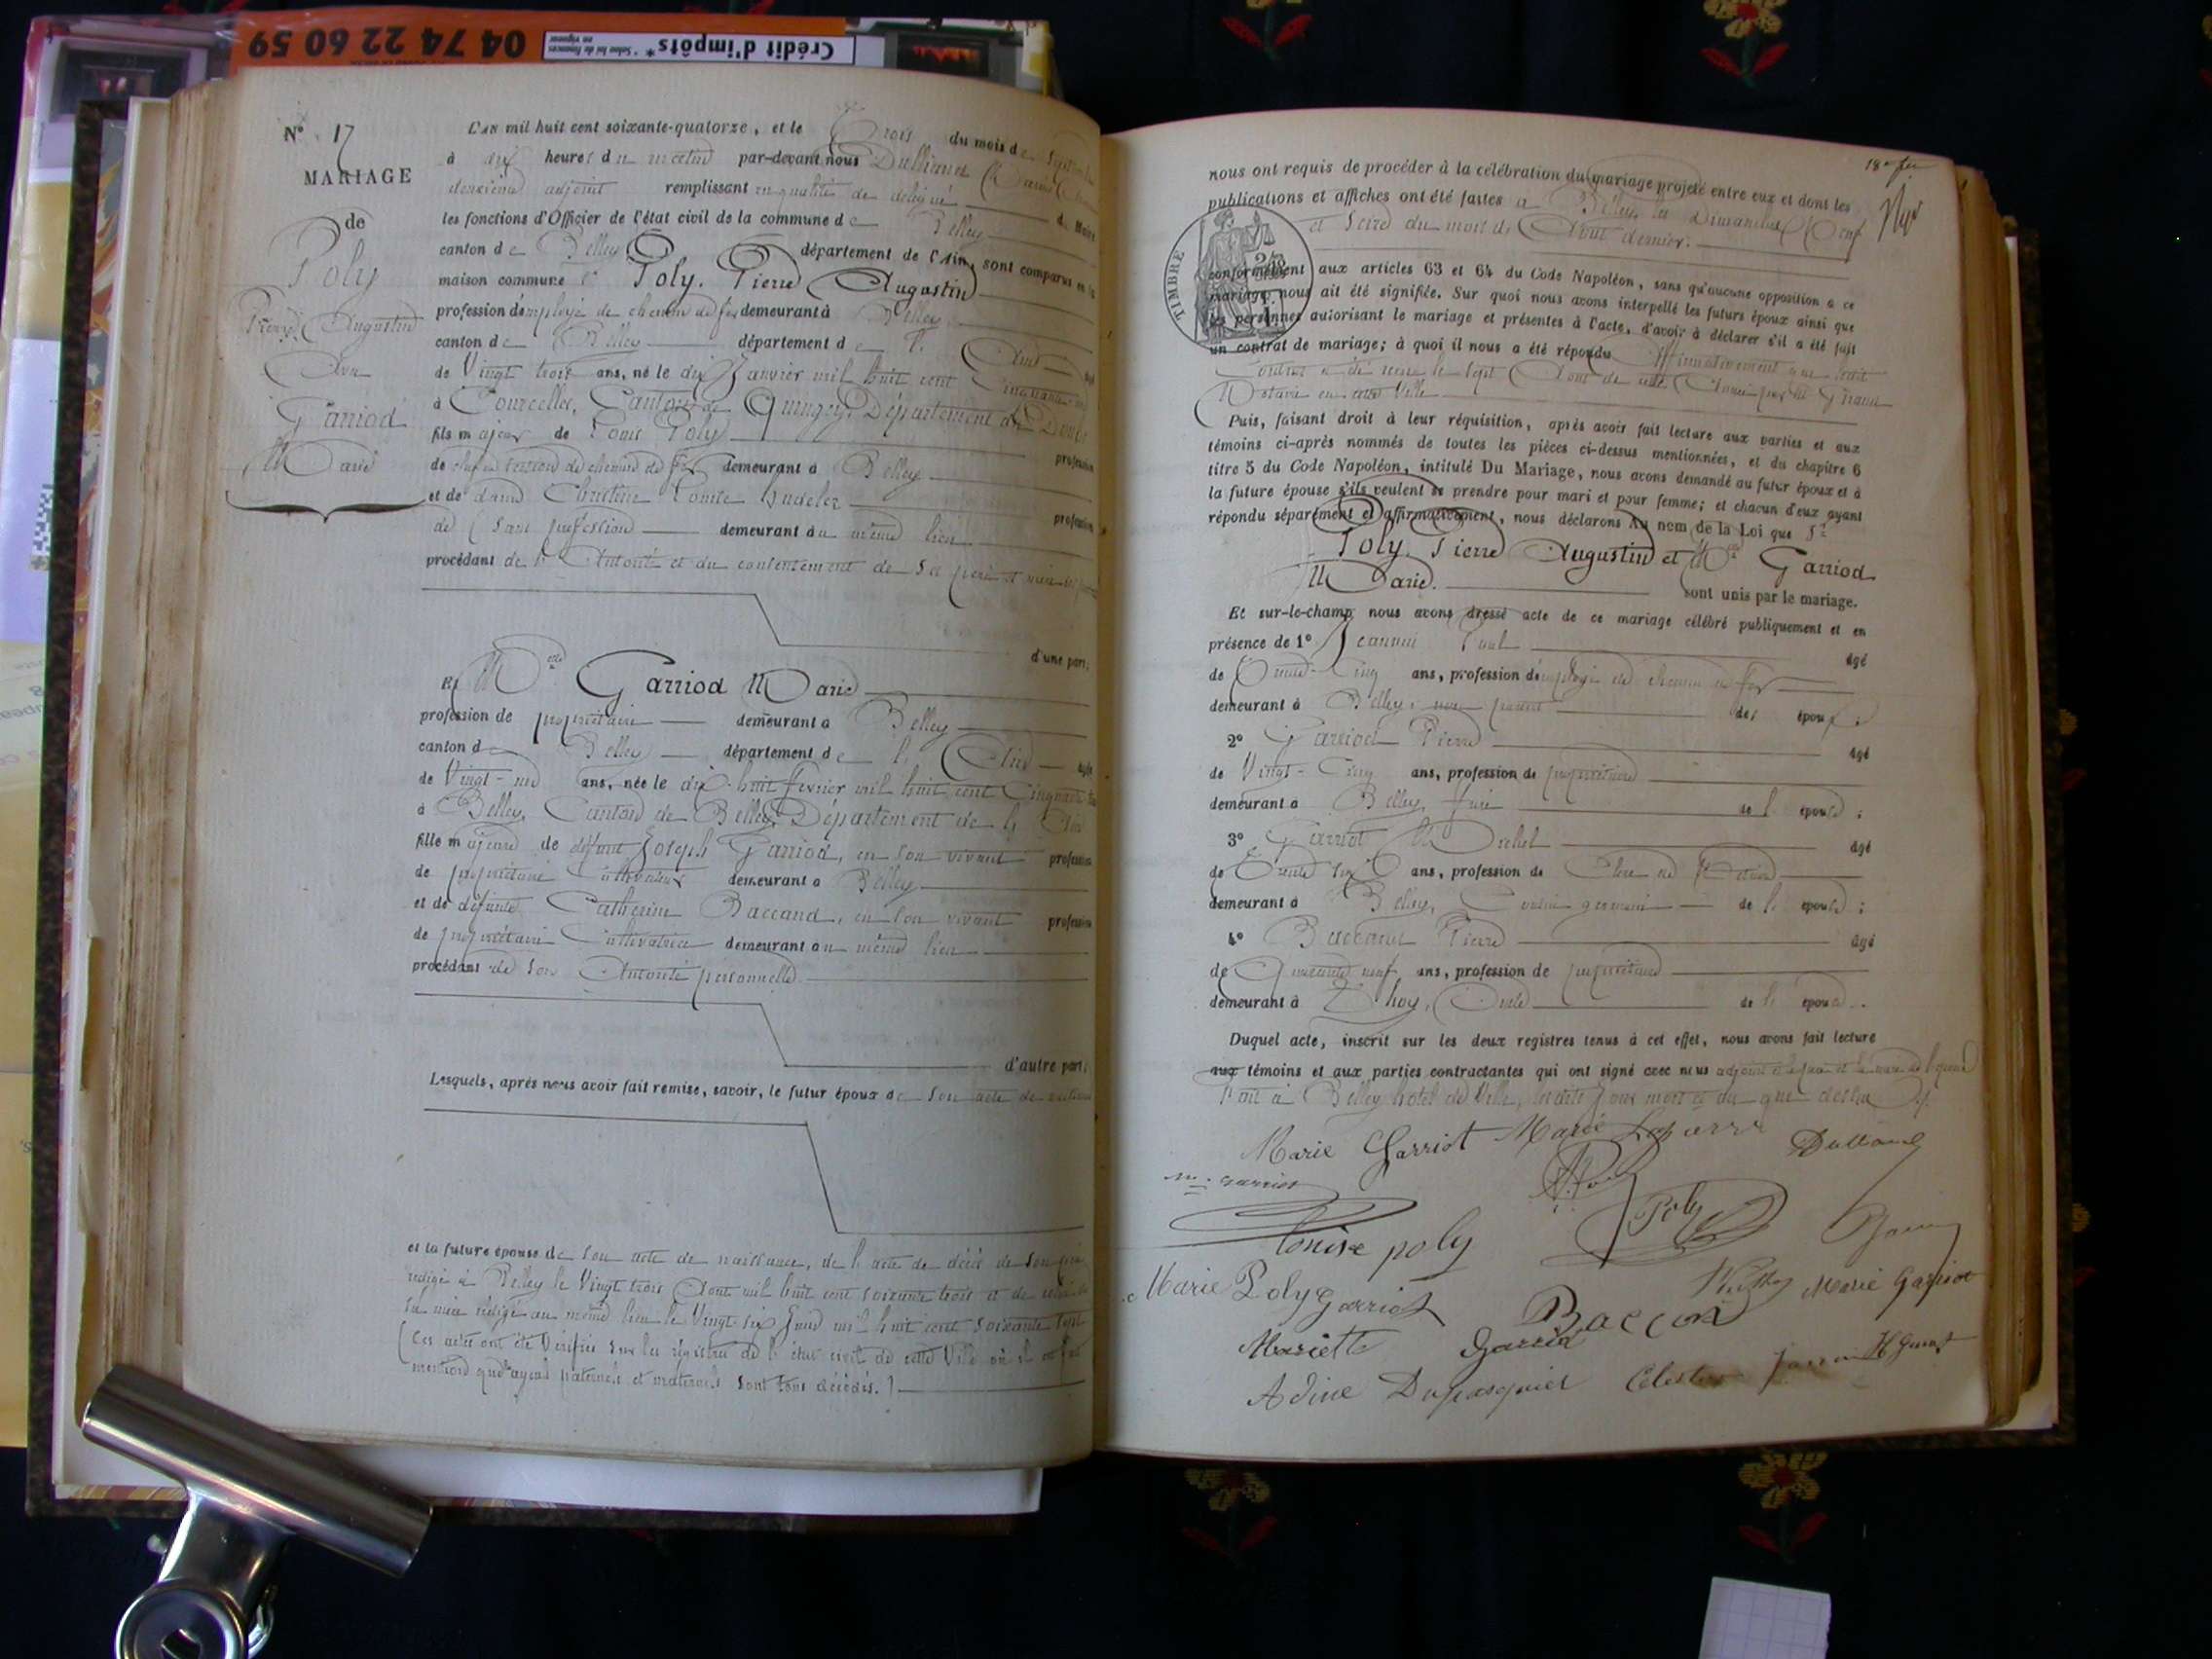 04 74 22 60 59
Crédit d'impôts*
* Selon loi de finances
en vigueur
N° 17
MARIAGE
de
Poly
Pierre Augustin
Garriod
Marie
L'AN mil huit cent soixante-quatorze, et le Trois du mois de
à dix heures du matin par-devant nous
deuxième adjoint remplissant en qualité de délégué du Maire
les fonctions d'Officier de l'état civil de la commune de Belley
canton de Belley département de l'Ain, sont comparus en la
maison commune Poly, Pierre Augustin
profession d'employé de chemin de fer demeurant à Belley
canton de Belley département de l'Ain
de Vingt trois ans, né le dix Janvier mil huit cent Cinquante-un
à Courcelles, Canton de Quingey, Département du Doubs
fils majeur de Louis Poly profession
de chef de section de chemin de fer demeurant à Belley
et de dame Christine Louise profession
de Sans profession demeurant au même lieu
procédant de l'Autorité et du consentement de ses père et mère
d'une part;
Et Melle Garriod Marie
profession de propriétaire demeurant à Belley
canton de Belley département de l'Ain âgée
de Vingt-un ans, née le dix-huit février mil huit cent Cinquante
à Belley, Canton de Belley, Département de l'Ain
fille majeure de défunt Joseph Garriod, en son vivant profession
de propriétaire Cultivateur demeurant à Belley
et de défunte Catherine Baccand, en son vivant profession
de propriétaire Cultivatrice demeurant au même lieu
procédant de son Autorité personnelle
d'autre part;
Lesquels, après nous avoir fait remise, savoir, le futur époux de son acte de naissance
et la future épouse de son acte de naissance, de l'acte de décès de son père
rédigé à Belley le Vingt trois Août mil huit cent soixante trois et de celui de
sa mère rédigé au même lieu le Vingt-six Juin mil huit cent soixante sept
(Ces actes ont été vérifiés sur les registres de l'état civil de cette Ville où il est fait
mention que les ayeuls paternels et maternels sont tous décédés.)
nous ont requis de procéder à la célébration du mariage projeté entre eux et dont les
publications et affiches ont été faites à Belley les Dimanches Neuf
et Seize du mois d'Août dernier.
TIMBRE
conformément aux articles 63 et 64 du Code Napoléon, sans qu'aucune opposition à ce
mariage nous ait été signifiée. Sur quoi nous avons interpellé les futurs époux ainsi que
les personnes autorisant le mariage et présentes à l'acte, d'avoir à déclarer s'il a été fait
un contrat de mariage; à quoi il nous a été répondu Affirmativement que ledit
contrat a été reçu le sept Août de cette Année par Me
Notaire en cette Ville
Puis, faisant droit à leur réquisition, après avoir fait lecture aux parties et aux
témoins ci-après nommés de toutes les pièces ci-dessus mentionnées, et du chapitre 6
titre 5 du Code Napoléon, intitulé Du Mariage, nous avons demandé au futur époux et à
la future épouse s'ils veulent se prendre pour mari et pour femme; et chacun d'eux ayant
répondu séparément et affirmativement, nous déclarons au nom de la Loi que Sr
Poly, Pierre Augustin et Melle Garriod
Marie. sont unis par le mariage.
Et sur-le-champ nous avons dressé acte de ce mariage célébré publiquement et en
présence de 1° Jeannin Paul âgé
de Trente-Cinq ans, profession d'employé de chemin de fer
demeurant à Belley, non parent des époux;
2° Garriod Pierre âgé
de Vingt-Cinq ans, profession de propriétaire
demeurant à Belley, frère de l'épouse;
3° Garriot Michel âgé
de Trente six ans, profession de Clerc de Notaire
demeurant à Belley, Cousin germain de l'épouse;
4° Pierre âgé
de Quarante neuf ans, profession de propriétaire
demeurant à Oncle de l'épouse.
Duquel acte, inscrit sur les deux registres tenus à cet effet, nous avons fait lecture
aux témoins et aux parties contractantes qui ont signé avec nous adjoint et le père et la mère de l'époux
Fait à Belley hôtel de Ville, les dits Jour mois et an que dessus.
Marie Garriot Marie
m. Garriot
Louise poly Poly
Marie Poly Garriot Marie Garriot
Mariette Baccon
Adine Dupasquier